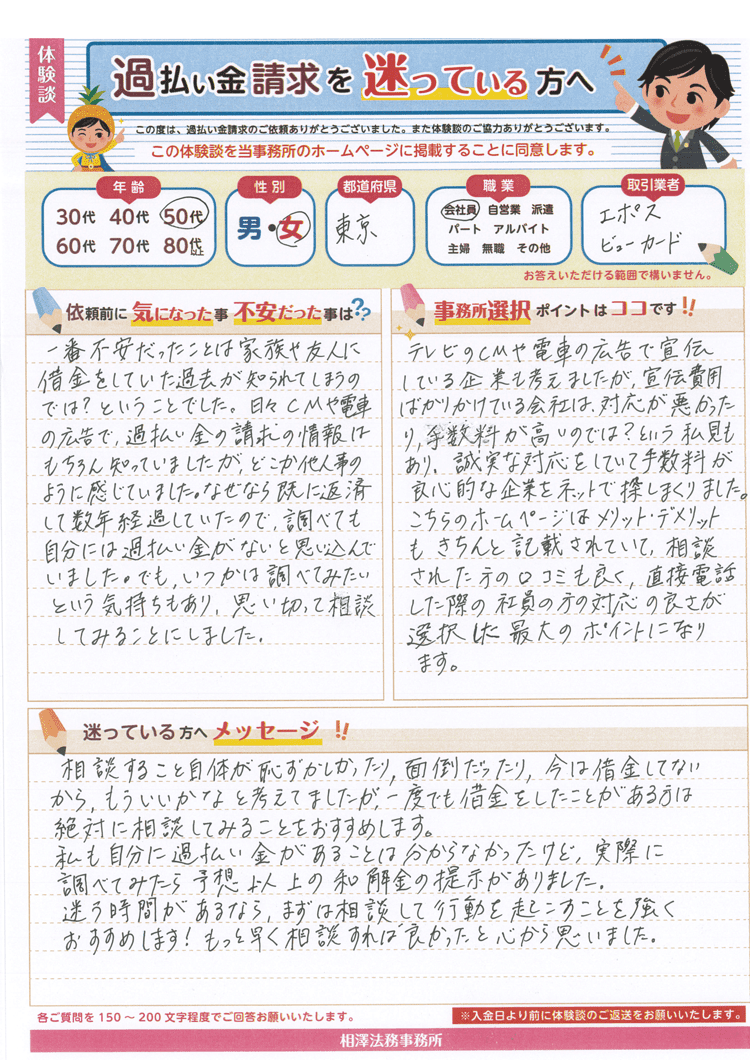 体験談
過払い金請求を迷っている方へ
この度は、過払い金請求のご依頼ありがとうございました。また体験談のご協力ありがとうございます。
この体験談を当事務所のホームページに掲載することに同意します。
年齢
30代 40代 50代
60代 70代 80代以上
性別
男・女
都道府県
東京
職業
会社員 自営業 派遣
パート アルバイト
主婦 無職 その他
取引業者
エポス
ビューカード
お答えいただける範囲で構いません。
依頼前に気になった事 不安だった事は??
一番不安だったことは家族や友人に
借金をしていた過去が知られてしまうの
では?ということでした。日々CMや電車
の広告で、過払い金の請求の情報は
もちろん知っていましたが、どこか他人事の
ように感じていました。なぜなら既に返済
して数年経過していたので、調べても
自分には過払い金がないと思い込んで
いました。でも、いつかは調べてみたい
という気持ちもあり、思い切って相談
してみることにしました。
事務所選択ポイントはココです!!
テレビのCMや電車の広告で宣伝
している企業も考えましたが、宣伝費用
ばかりかけている会社は、対応が悪かった
り、手数料が高いのでは?という私見も
あり、誠実な対応をしていて手数料が
良心的な企業をネットで探しまくりました。
こちらのホームページはメリット・デメリット
もきちんと記載されていて、相談
された方の口コミも良く、直接電話
した際の社員の方の対応の良さが
選択した最大のポイントになり
ます。
迷っている方へメッセージ!!
相談すること自体が恥ずかしかったり、面倒だったり、今は借金してない
から、もういいかなと考えてましたが、一度でも借金をしたことがある方は
絶対に相談してみることをおすすめします。
私も自分に過払い金があることは分からなかったけど、実際に
調べてみたら予想以上の和解金の提示がありました。
迷う時間があるなら、まずは相談して行動を起こすことを強く
おすすめします!もっと早く相談すれば良かったと心から思いました。
各ご質問を150〜200文字程度でご回答お願いいたします。
※入金日より前に体験談のご返送をお願いいたします。
相澤法務事務所